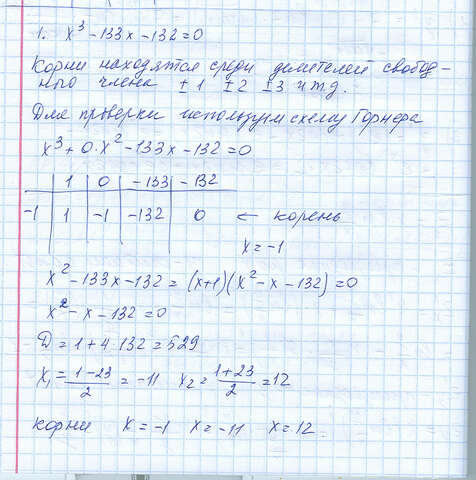 1. x³ - 133x - 132 = 0
Корни находятся среди делителей свобод-
ного члена ±1 ±2 ±3 и т.д.
Для проверки используем схему Горнера
x³ + 0·x² - 133x - 132 = 0
1 0 -133 -132
-1 1 -1 -132 0 ← корень
x = -1
x² - 133x - 132 = (x+1)(x² - x - 132) = 0
x² - x - 132 = 0
D = 1 + 4·132 = 529
x₁ = (1-23)/2 = -11 x₂ = (1+23)/2 = 12
корни x = -1 x = -11 x = 12